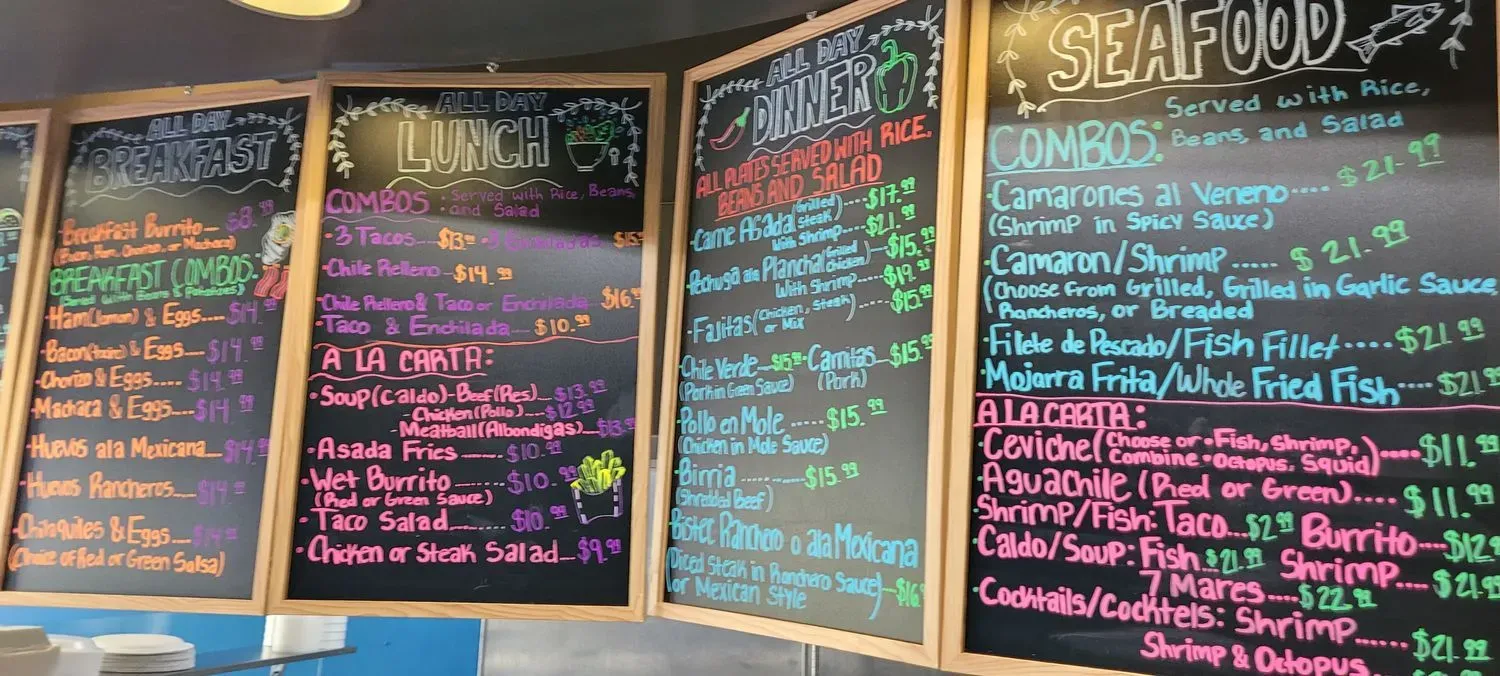 ALL DAY
BREAKFAST
Breakfast Burrito $8.99
(Bacon, Ham, Chorizo, or Machaca)
BREAKFAST COMBOS:
(Served With Beans & Potatoes)
·Ham(Jamon) & Eggs.... $14.99
·Bacon(Tocino) & Eggs... $14.99
·Chorizo & Eggs.... $14.99
·Machaca & Eggs... $14.99
·Huevos ala Mexicana... $14.99
·Huevos Rancheros... $14.99
·Chilaquiles & Eggs... $14.99
(Choice of Red or Green Salsa)
ALL DAY
LUNCH
COMBOS : Served with Rice, Beans,
and Salad
·3 Tacos...$13.99 ·3 Enchiladas $15
·Chile Relleno - $14.99
·Chile Relleno & Taco or Enchilada $16.99
·Taco & Enchilada... $10.99
A LA CARTA:
·Soup(Caldo)-Beef(Res)... $13.99
-Chicken(Pollo)... $12.99
-Meatball(Albondigas)... $13.99
·Asada Fries ....... $10.99
·Wet Burrito ....... $10.99
(Red or Green Sauce)
·Taco Salad....... $10.99
·Chicken or Steak Salad... $9.99
ALL DAY
DINNER
ALL PLATES SERVED WITH RICE,
BEANS AND SALAD
·Carne Asada (Grilled Steak)---- $17.99
With Shrimp.... $21.99
·Pechuga ala Plancha (Grilled Chicken) $15.99
With Shrimp.... $19.99
·Fajitas (Chicken, Steak, or Mix)..... $15.99
·Chile Verde...$15.99 ·Carnitas... $15.99
(Pork in Green Sauce) (Pork)
·Pollo en Mole ...... $15.99
(Chicken in Mole Sauce)
·Birria ......... $15.99
(Shredded Beef)
·Bistec Ranchero o ala Mexicana
(Diced Steak in Ranchero Sauce) $16
or Mexican Style
SEAFOOD
COMBOS: Served with Rice,
Beans, and Salad
·Camarones al Veneno.... $21.99
(Shrimp in Spicy Sauce)
·Camaron/Shrimp ..... $21.99
(Choose from Grilled, Grilled in Garlic Sauce,
Rancheros, or Breaded
·Filete de Pescado/Fish Fillet..... $21.99
·Mojarra Frita/Whole Fried Fish.... $21.99
A LA CARTA:
·Ceviche (Choose or ·Fish, Shrimp,
Combine ·Octopus, Squid).... $11.99
·Aguachile (Red or Green).... $11.99
·Shrimp/Fish: Taco...$2.99 Burrito....$12.99
·Caldo/Soup: Fish..$21.99 Shrimp.... $21.99
7 Mares....$22.99
·Cocktails/Cocktels: Shrimp...... $21.99
Shrimp & Octopus